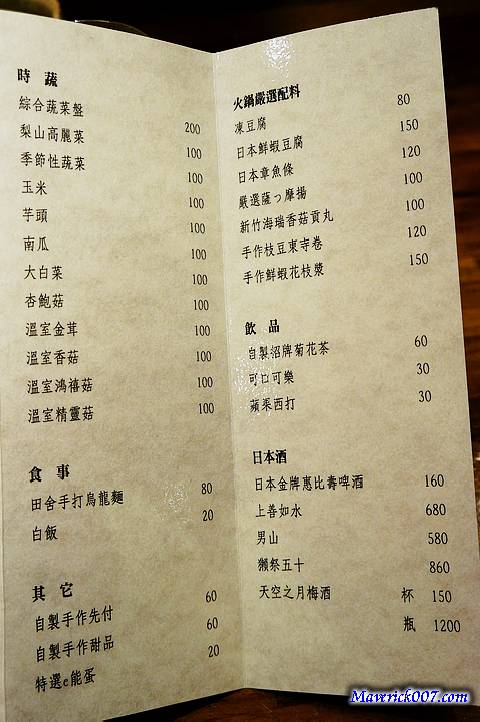 時 蔬
綜合蔬菜盤 200
梨山高麗菜 100
季節性蔬菜 100
玉米 100
芋頭 100
南瓜 100
大白菜 100
杏鮑菇 100
溫室金茸 100
溫室香菇 100
溫室鴻禧菇 100
溫室精靈菇 100
食 事
田舍手打烏龍麵 80
白飯 20
其 它
自製手作先付 60
自製手作甜品 60
特選e能蛋 20
火鍋嚴選配料
凍豆腐 80
日本鮮蝦豆腐 150
日本章魚條 120
嚴選薩っ摩揚 100
新竹海瑞香菇貢丸 100
手作枝豆東寺卷 120
手作鮮蝦花枝漿 150
飲 品
自製招牌菊花茶 60
可口可樂 30
蘋果西打 30
日本酒
日本金牌惠比壽啤酒 160
上善如水 680
男山 580
獺祭五十 860
天空之月梅酒 杯 150
瓶 1200
Maverick007.com